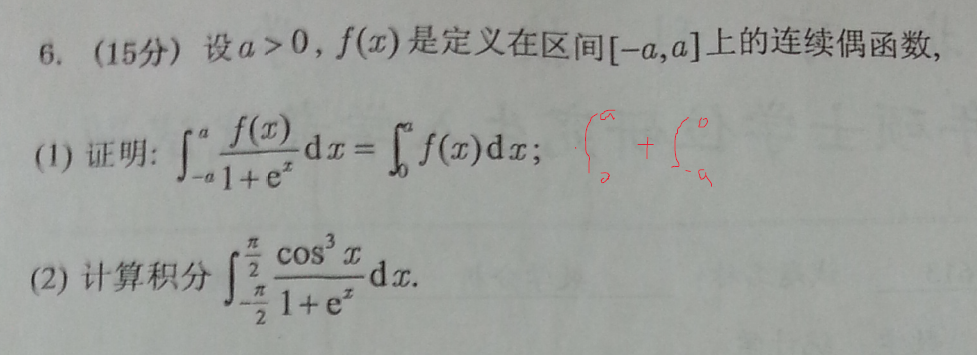 6. (15分) 设 a > 0, f(x) 是定义在区间[-a,a]上的连续偶函数,
(1) 证明: ∫_{-a}^{a} f(x)/(1+e^x) dx = ∫_0^a f(x)dx; ∫_0^a + ∫_{-a}^0
(2) 计算积分 ∫_{-π/2}^{π/2} cos³x/(1+e^x) dx.